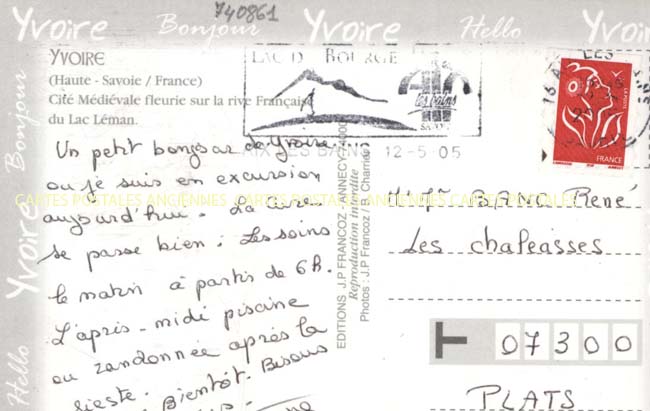 740861
Yvoire Bonjour Yvoire Hello Yvoire
Bonjour
Yvoire
Hello
YVOIRE
(Haute - Savoie / France)
Cité Médiévale fleurie sur la rive Française
du Lac Léman.
LAC D BOURGE
AIX
les bains
SAVOIE
AIX LES BAINS 12-5-05
LA POSTE
FRANCE
Un petit bonjour de Yvoire
ou je suis en excursion
aujourd'hui. La cure
se passe bien. Les soins
le matin à partir de 6h.
L'après-midi piscine
ou randonnée après la
sieste. Bientôt. Bisous
CARTES POSTALES ANCIENNES CARTES POSTALES ANCIENNES CARTES POSTALES
EDITIONS J.P FRANCOZ - ANNECY
Reproduction interdite
Photos : J.P Francoz /
René
Les chaleasses
07300
PLATS